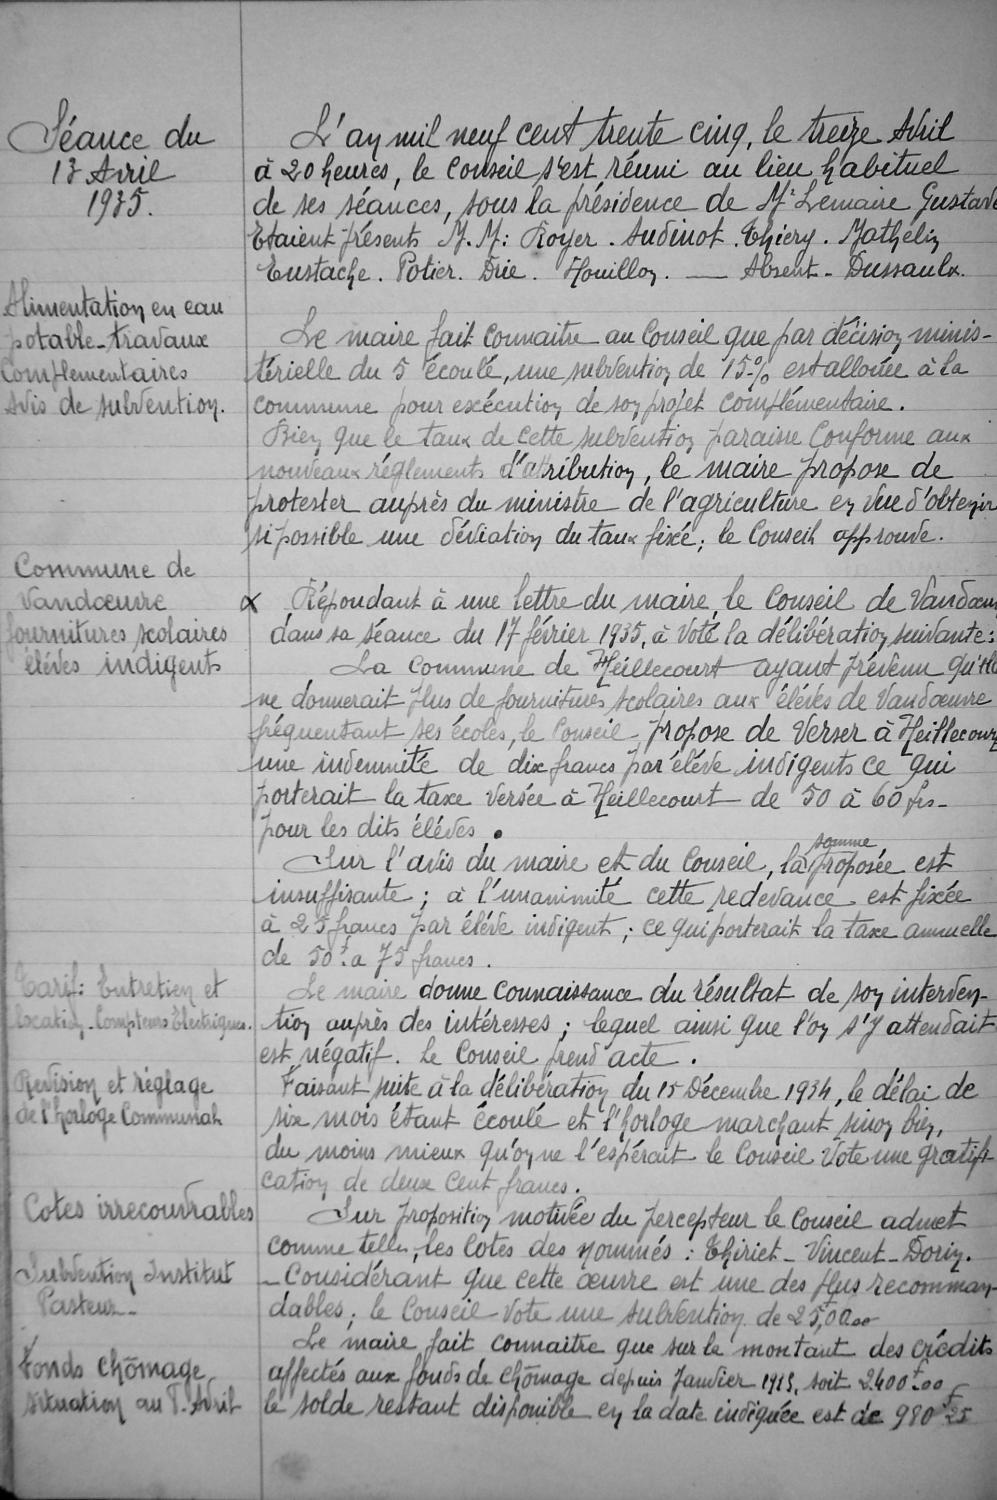 Séance du
13 Avril
1935.
L'an mil neuf cent trente cinq, le treize Avril
à 20 heures, le Conseil s'est réuni au lieu habituel
de ses séances, sous la présidence de Mr Lemaire Gustave
Etaient présents M.M: Royer. Audinot. Thiéry. Mathelin
Eustache. Potier. Drie. Houillon. — Absent - Dussaulx.
Alimentation en eau
potable - travaux
Complementaires
Avis de subvention.
Le maire fait connaitre au Conseil que par décision minis-
térielle du 5 écoulé, une subvention de 15% est allouée à la
commune pour exécution de son projet complémentaire.
Bien que le taux de cette subvention paraisse conforme aux
nouveaux réglements d'attribution, le maire propose de
protester auprès du ministre de l'agriculture en vue d'obtenir
si possible une déviation du taux fixé; le Conseil approuve.
Commune de
Vandœuvre
fournitures scolaires
éléves indigents
x Répondant à une lettre du maire, le Conseil de Vandœu
dans sa séance du 17 février 1935, à voté la délibération suivante:
La Commune de Heillecourt ayant prévenu qu'elle
ne donnerait plus de fournitures scolaires aux éléves de Vandœuvre
fréquentant ses écoles, le Conseil propose de verser à Heillecourt
une indemnité de dix francs par éléve indigents ce qui
porterait la taxe versée à Heillecourt de 50 à 60 frs-
pour les dits éléves.
Sur l'avis du maire et du Conseil, la somme proposée est
insuffisante; à l'unanimité cette redevance est fixée
à 25 francs par éléve indigent; ce qui porterait la taxe annuelle
de 50f a 75 francs.
Tarif: Entretien et
location - Compteurs Electriques.
Le maire donne connaissance du résultat de son interven-
tion auprès des intéresses; lequel ainsi que l'on s'y attendait
est négatif. Le Conseil prend acte.
Revision et réglage
de l'horloge Communal
Faisant suite à la délibération du 15 Décembre 1934, le délai de
six mois étant écoulé et l'horloge marchant sinon bien,
du moins mieux qu'on ne l'espérait le Conseil vote une gratifi
cation de deux cent francs.
Cotes irrecouvrables
Sur proposition motivée du percepteur le Conseil admet
comme telles, les Cotes des nommés: Thiriet - Vincent - Dorin.
Subvention Institut
Pasteur -
- Considérant que cette œuvre est une des plus recomman-
dables; le Conseil vote une subvention de 25f,00
Fonds chômage
situation au 1. Avril
Le maire fait connaitre que sur le montant des crédits
affectés aux fonds de chômage depuis Janvier soit 2.400f00
le solde restant disponible en la date indiquée est de 980f25